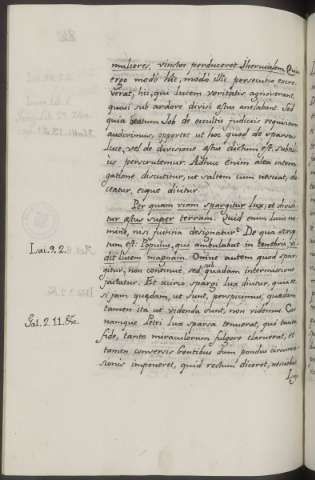 mulieres, vinctos perduceret Jherusalem. Quia
ergo modo hîc, modo illic persecutio excre-
verat, hii, qui lucem veritatis agnoverant,
quasi sub ardore divisi æstus anelabant. Sed
quia beatum Job de occultis judiciis requisitum
audivimus, oportet ut hoc quod de sparsione
lucis, vel de divisione æstus dictum est, subtil-
ius perscrutemur. Adhuc enim alta interro-
gatione discutitur, ut saltem cum nesciat, do-
ceatur, eique dicitur
Per quam viam spargitur lux, et dividi-
tur æstus super terram. Quid enim lucis no-
mine, nisi justitia designatur? De qua scrip-
tum est: Populus, qui ambulabat in tenebris vi-
Isai. 9. 2.
dit lucem magnam. Omne autem quod spar-
gitur, non continuè, sed quadam intermissione
jactatur. Et iccirco spargi lux dicitur, quia et
si jam quædam, ut sunt, perspicimus, quædam
tamen ita ut videnda sunt, non videmus. Cor
namque Petri lux sparsa tenuerat, qui tanta
Gal. 2. 11. &c.
fide, tanto miraculorum fulgore claruerat, et
tamen conversis gentibus dum pondus circunci-
sionis imponeret, quid rectum diceret, nesciebat.